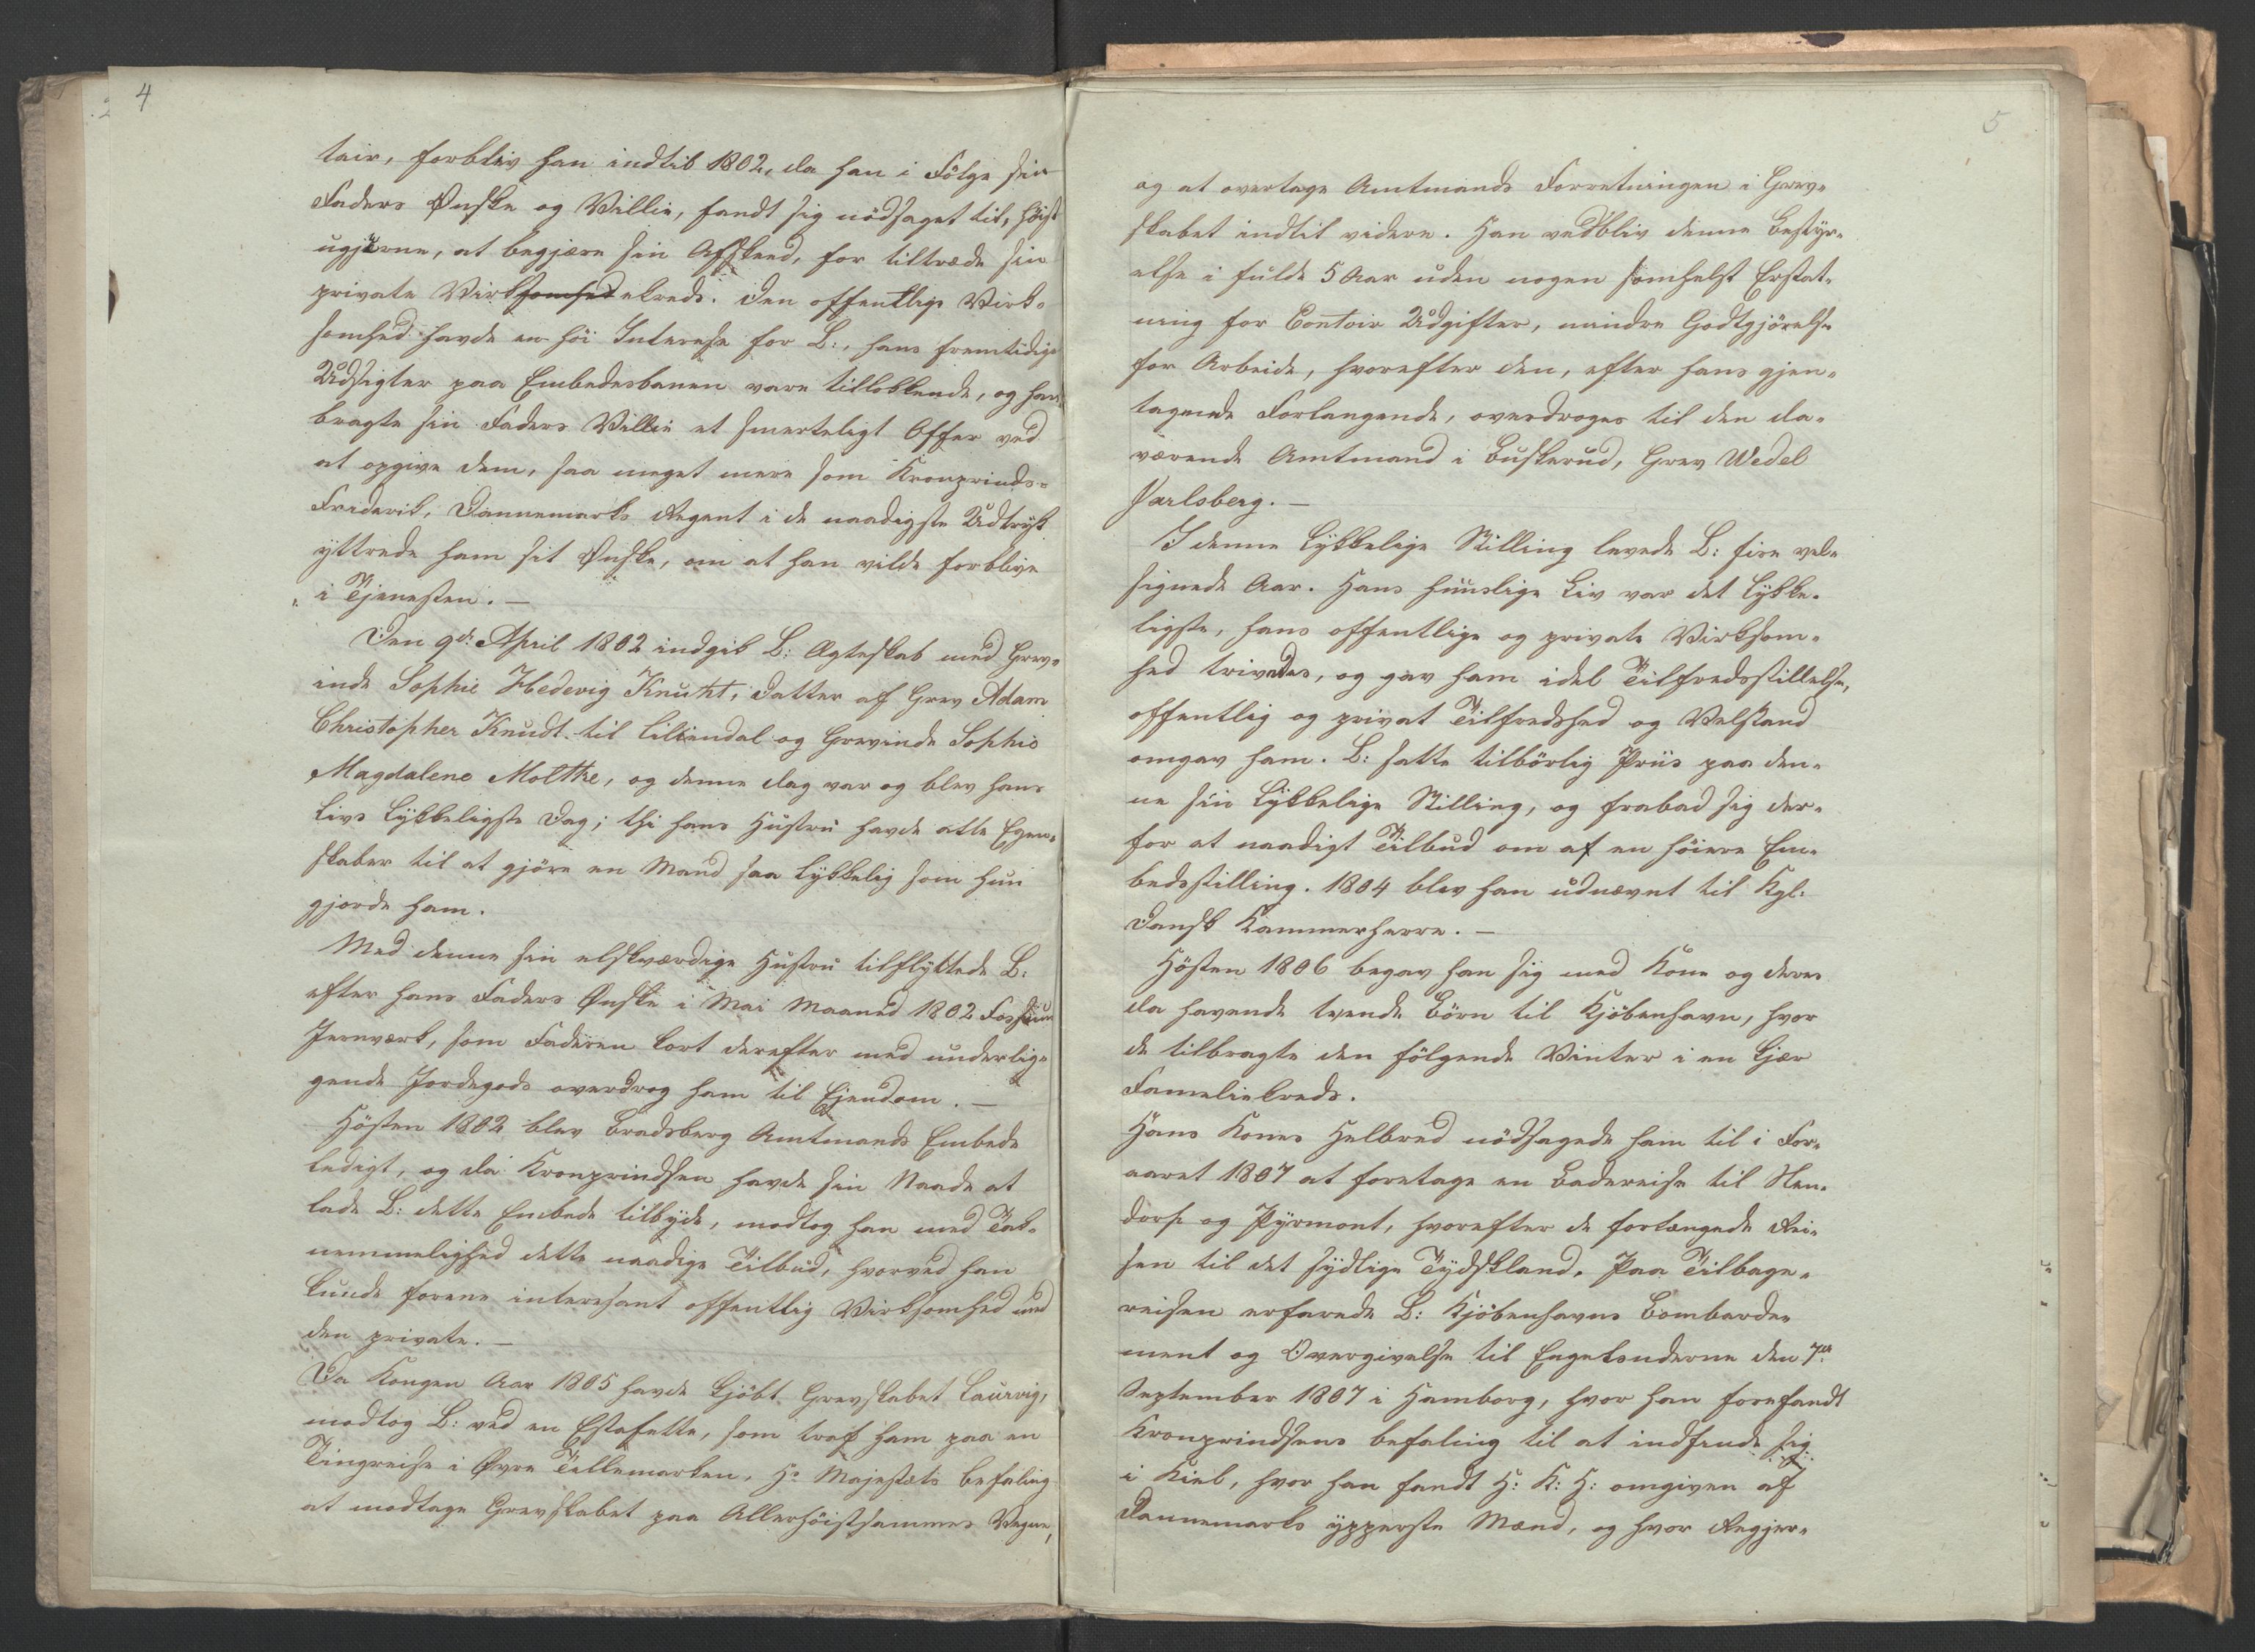 4
tair, forblev han indtil 1802, da han i Følge sin
Faders Ønske og Villie, fandt sig nødsaget til, høist
ugjerne, at begjære sin Afskeed, for tiltræde sin
private Virksomhedskreds. Den offentlige Virk-
somhed havde en høi Interesse for L:, hans fremtidige
Udsigter paa Embedesbanen vare tillokkende, og han
bragte sin Faders Villie et smerteligt Offer ved
at opgive dem, saa meget mere som Kronprinds-
Friderik, Dannemarks Regent i de naadigste Udtryk
yttrede ham sit Ønske, om at han vilde forblive
i Tjenesten. —
Den 9de April 1802 indgik L: Ægteskab med Grev-
inde Sophie Hedevig Knuht, Datter af Grev Adam
Christopher Knudt til Liliendal og Grevinde Sophie
Magdalene Moltke, og denne Dag var og blev hans
Livs lykkeligste Dag; thi hans Hustru havde alle Egen-
skaber til at gjøre en Mand saa lykkelig som hun
gjorde ham.
Med denne sin elskværdige Hustru tilflyttede L:
efter hans Faders Ønske i Mai Maaned 1802 Fossum
Jernværk, som Faderen kort derefter med underlig-
gende Jordegods overdrog ham til Ejendom. —
Høsten 1802 blev Bradsberg Amtmands Embede
ledigt, og da Kronprindsen havde sin Naade at
lade L: dette Embede tilbyde, modtog han med Tak-
nemmelighed dette naadige Tilbud, hvorved han
kunde forene interesant offentlig Virksomhed med
den private. —
Da Kongen Aar 1805 havde kjøbt Grevskabet Laurvig,
modtog L: ved en Estafette, som traf ham paa en
Tingreise i Øvre Tellemarken, Hs Majestæts Befaling
at modtage Grevskabet paa Allerhøistsammes Vegne,
5
og at overtage Amtmands Forretningen i Grev-
skabet indtil videre. Han vedblev denne Bestyr-
else i fulde 5 Aar uden nogen somhelst Erstat-
ning for Contoir Udgifter, mindre Godtgjørelse
for Arbeide, hvorefter den, efter hans gjen-
tagende Forlangende, overdroges til den da-
værende Amtmand i Buskerud, Grev Wedel
Jarlsberg. —
I denne lykkelige Stilling levede L: fire vel-
signede Aar. Hans huuslige Liv var det lykke-
ligste, hans offentlige og private Virksom-
hed trivedes, og gav ham idel Tilfredsstillelse,
offentlig og privat Tilfredshed og Velstand
omgav ham. L: satte tilbørlig Priis paa den-
ne sin lykkelige Stilling, og frabad sig der-
for at naadigt Tilbud om af en høiere Em-
bedsstilling. 1804 blev han udnævnt til Kgl:
Dansk Kammerherre. —
Høsten 1806 begav han sig med Kone og deres
da havende tvende Børn til Kjøbenhavn, hvor
de tilbragte den følgende Vinter i en kjær
Familiekreds.
Hans Kones Helbred nødsagede ham til i For-
aaret 1807 at foretage en Badereise til Nen-
dorf og Pyrmont, hvorefter de forlængede Rei-
sen til det sydlige Tydskland. Paa Tilbage-
reisen erfarede L: Kjøbenhavns Bombarde-
ment og Overgivelse til Engelænderne den 7de
September 1807 i Hamborg, hvor han forefandt
Kronprindsens Befaling til at indfinde sig
i Kiel, hvor han fandt H: K: H: omgiven af
Dannemarks ypperste Mænd, og hvor Regjer-